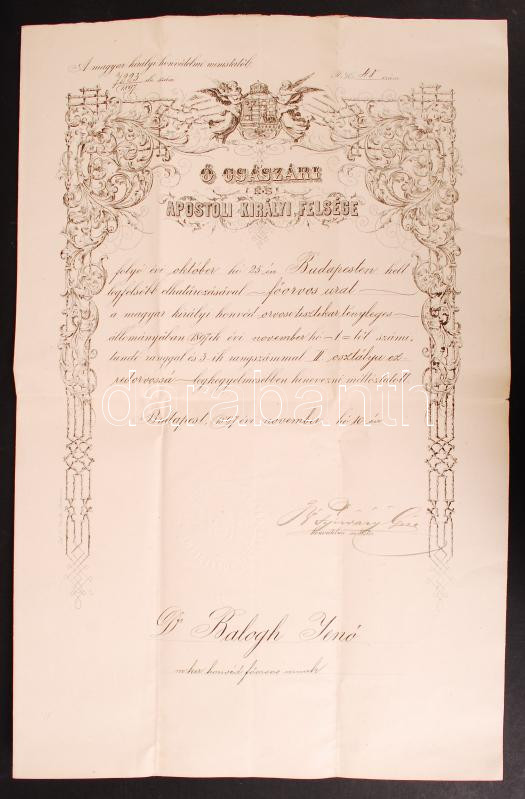 A magyar királyi honvédelmi ministertől.
7293 eln. szám
1897
48 szám
Ő CSÁSZÁRI
ÉS
APOSTOLI KIRÁLYI FELSÉGE
folyó évi október hó 25-én Budapesten kelt
legfelsőbb elhatározásával főorvos urat
a magyar királyi honvéd orvosi tisztikar tényleges
állományában 1897-ik évi november hó 1-től számí-
tandó ranggal és 3-ik rangszámmal II osztályu ez-
redorvossá legkegyelmesebben kinevezni méltóztatott.
darabanth
Budapest, 1897 évi november hó 10-én
honvédelmi minister
Dr Balogh Jenő
m. kir. honvéd főorvos úrnak